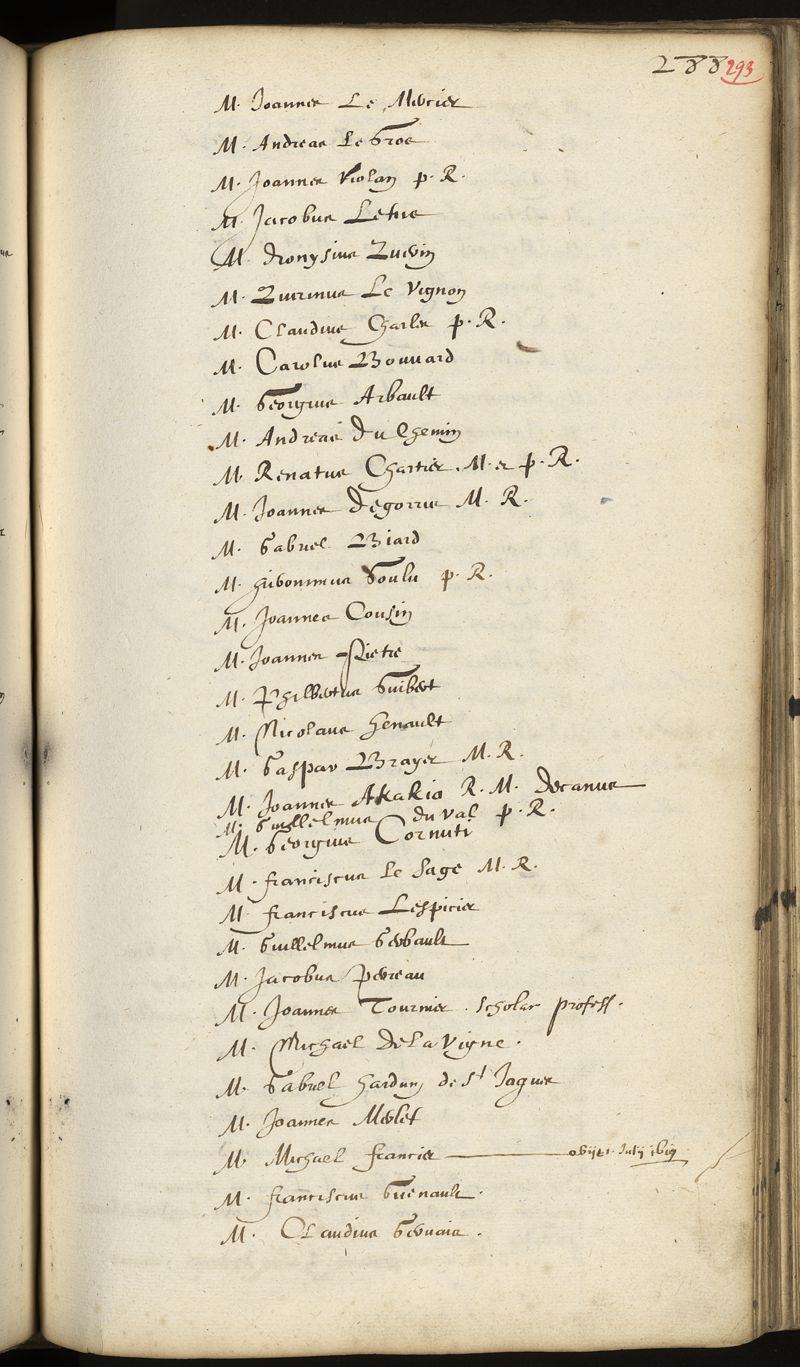 288 293
M. Joannes Le Mercier
M. Andreas Le Gros
M. Joannes Violan p. R.
M. Jacobus Letus
M. Dionysius Guerin
M. Quirinus Le Vignon
M. Claudius Charles p. R.
M. Carolus Bouvard
M. Georgius Arbault
M. Andreas Du Chemin
M. Renatus Chartier. M. et p. R.
M. Joannes Degorris M. R.
M. Gabriel Biard
M. Hieronimus Goulu p. R.
M. Joannes Cousin
M. Joannes Pietre
M. Philbertus Guibert
M. Nicolaus Henault
M. Gaspar Brayer M. R.
M. Joannes Akakia R. M. Decanus
M. Guillelmus du Val p. R.
M. Georgius Cornuti
M. franciscus Le Sage M. R.
M. franciscus Lespicier
M. Guillelmus Gerbault
M. Jacobus Perreau
M. Joannes Tournier. Scholar profess.
M. Michael De La Vigne.
M. Gabriel Harduin de St Jaques
M. Joannes Merlet
M. Michael francier obijt 1. Julij 1619
M. franciscus Guenault.
M. Claudius Gervais.